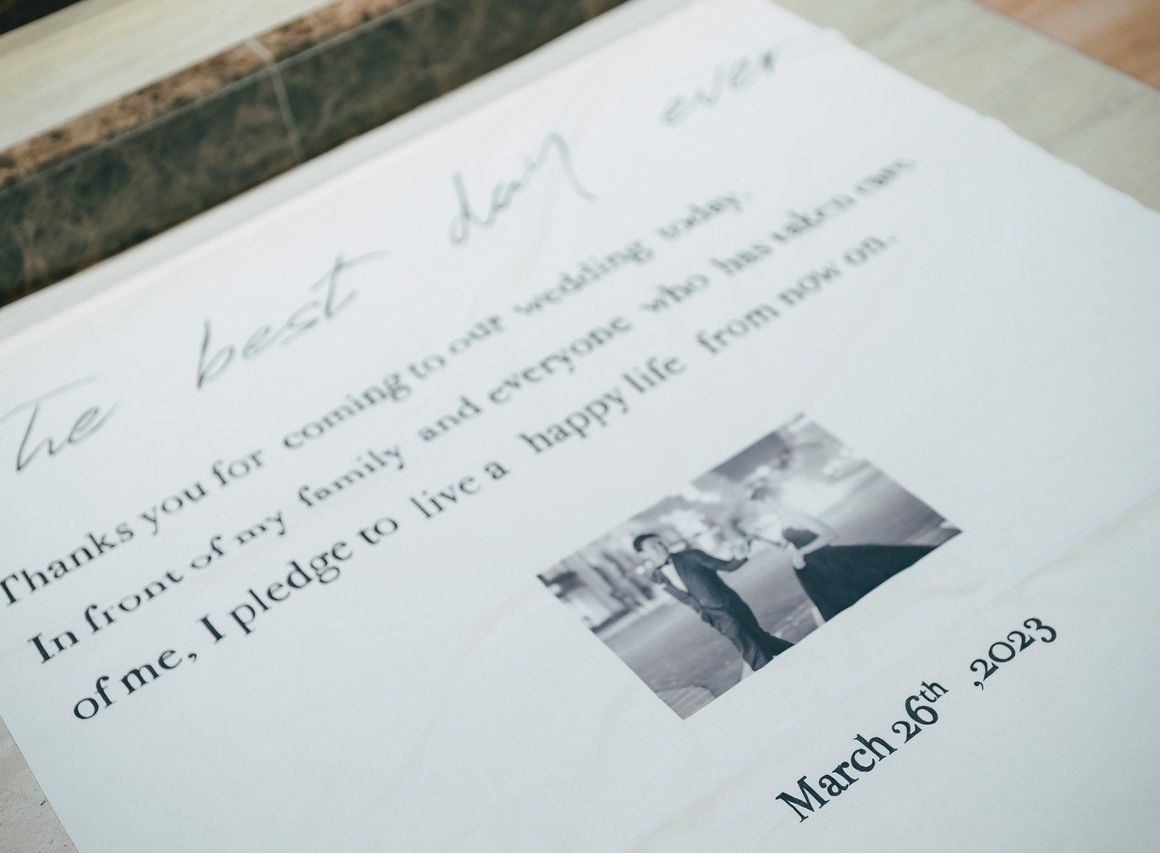 The best day ever
Thanks you for coming to our wedding today.
In front of my family and everyone who has taken care
of me, I pledge to live a happy life from now on.
March 26th ,2023